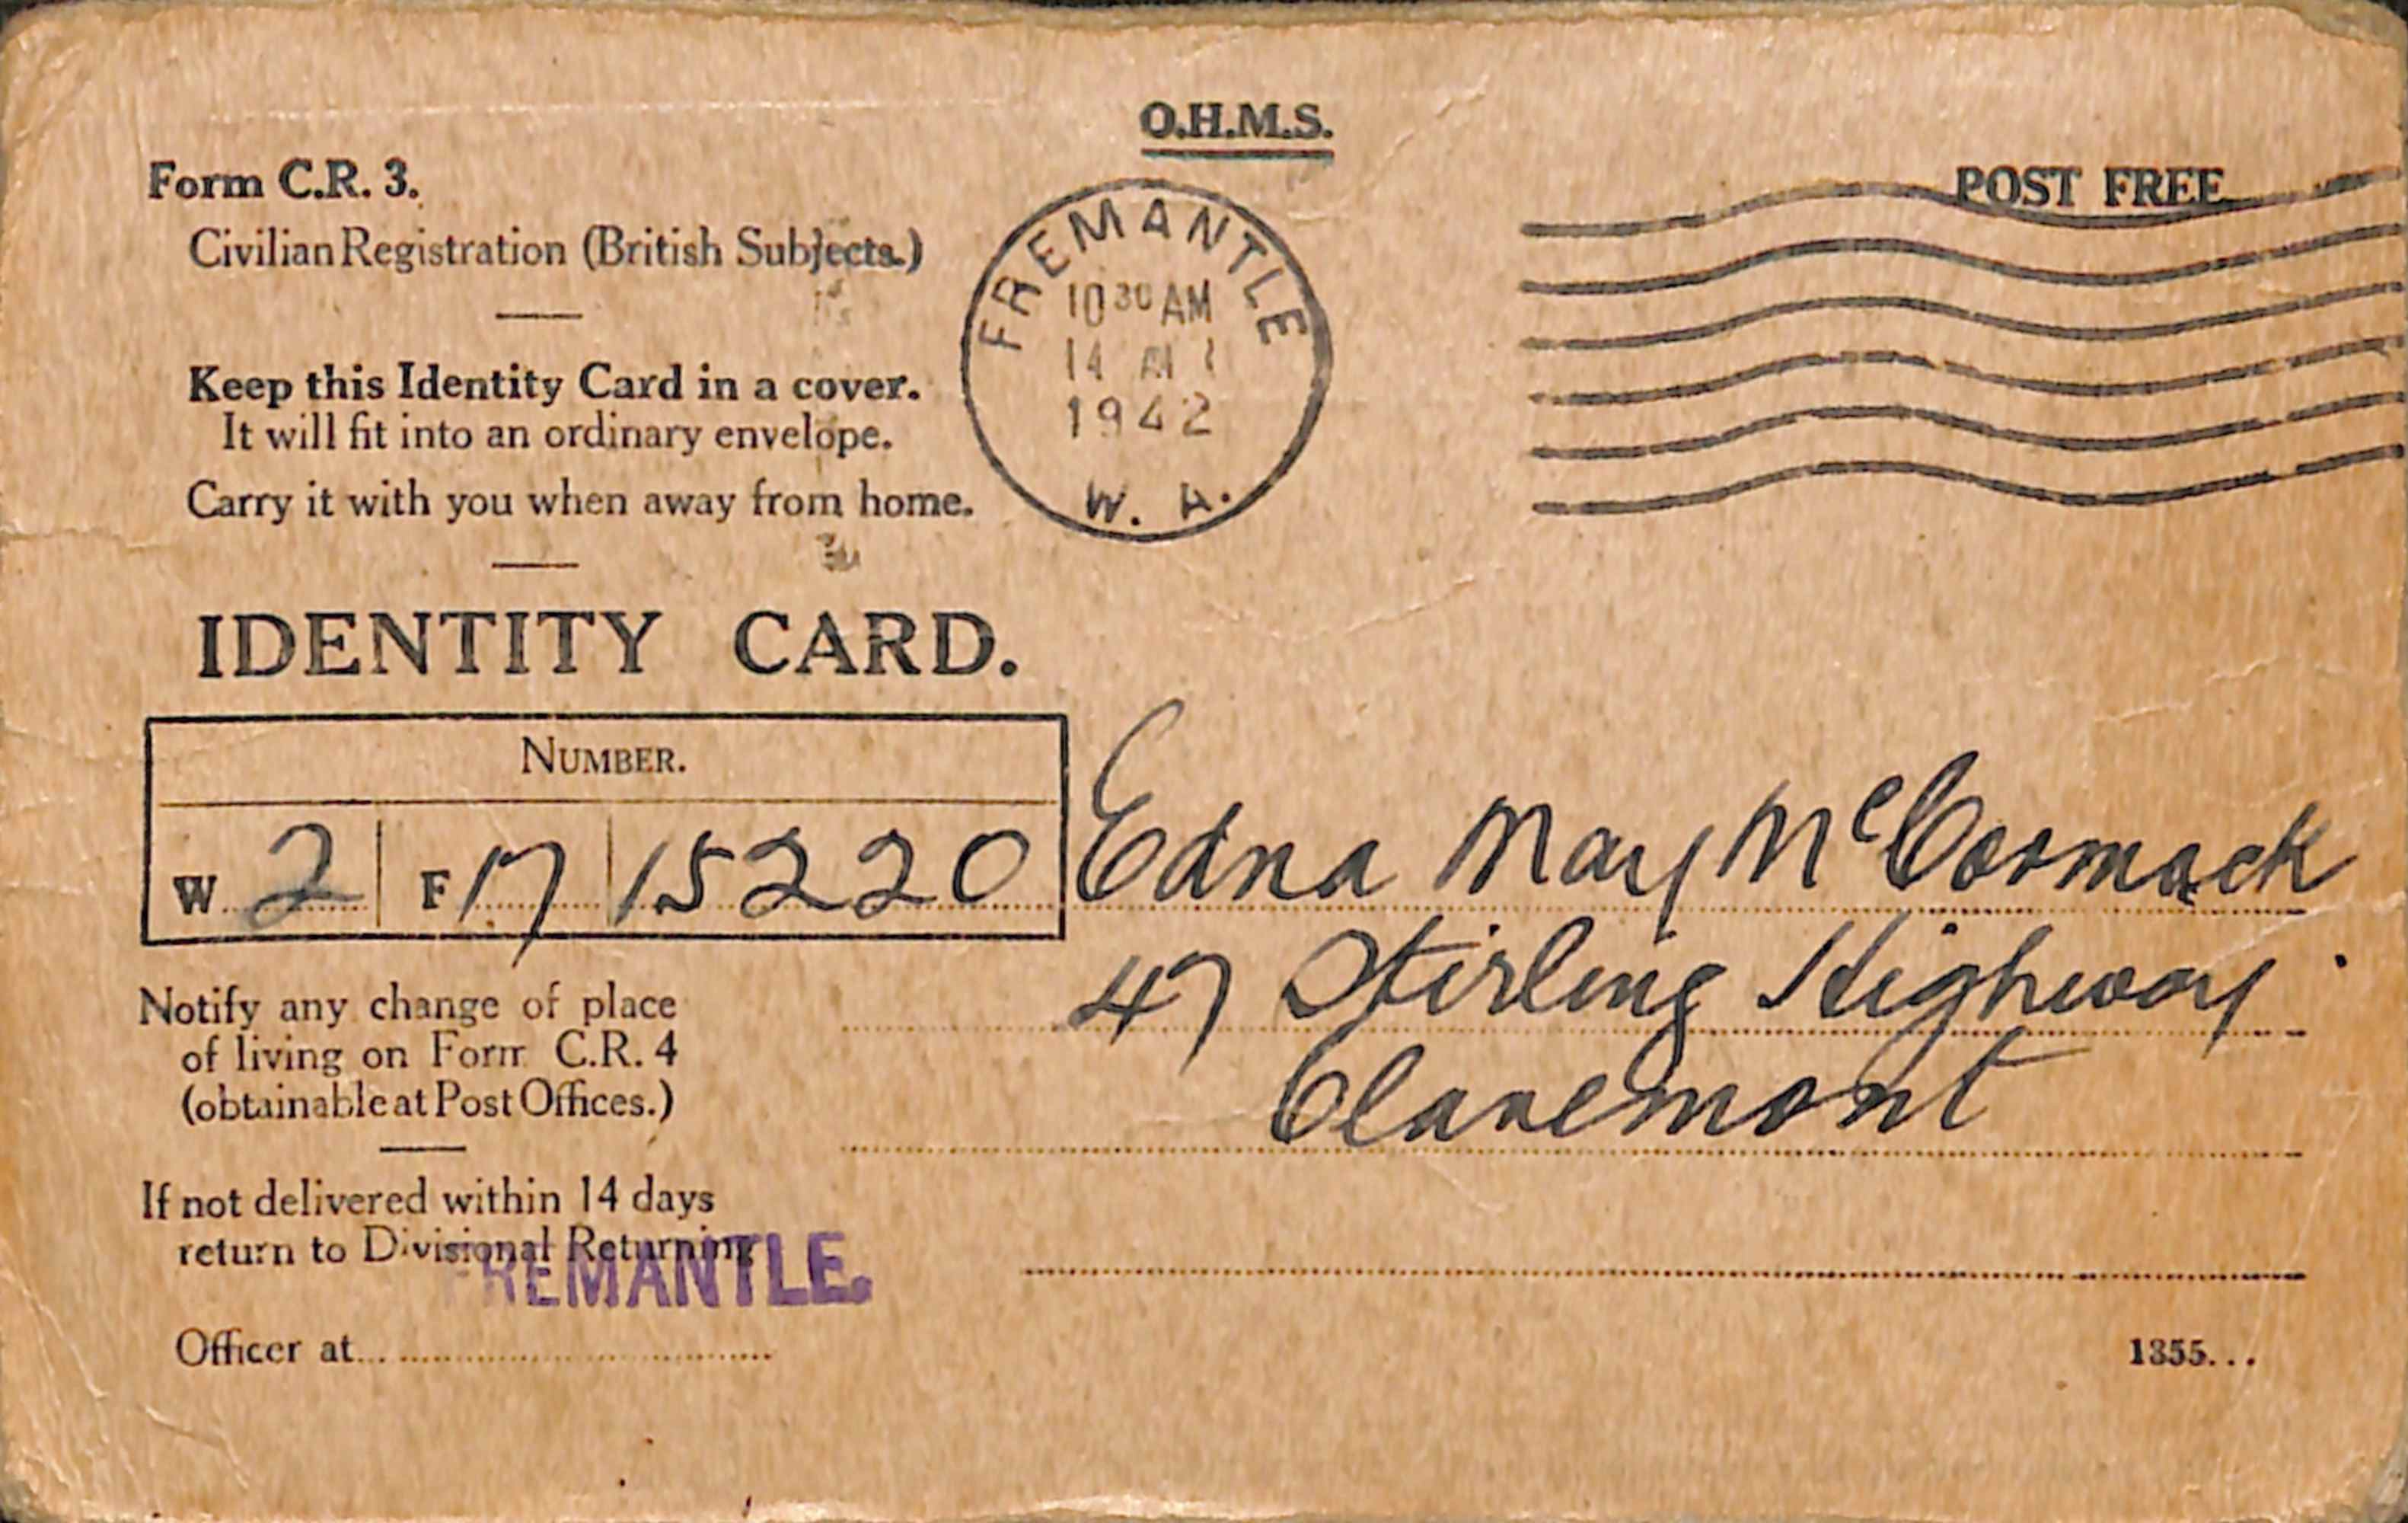 O.H.M.S.
Form C.R. 3.
POST FREE
Civilian Registration (British Subjects.)
FREMANTLE
10 30 AM
14
1942
W. A.
Keep this Identity Card in a cover.
It will fit into an ordinary envelope.
Carry it with you when away from home.
IDENTITY CARD.
NUMBER.
W 2 F 17 15220
Edna May McCormack
47 Stirling Highway
Claremont
Notify any change of place
of living on Form C.R. 4
(obtainable at Post Offices.)
If not delivered within 14 days
return to Divisional Returning
FREMANTLE.
Officer at
1355...